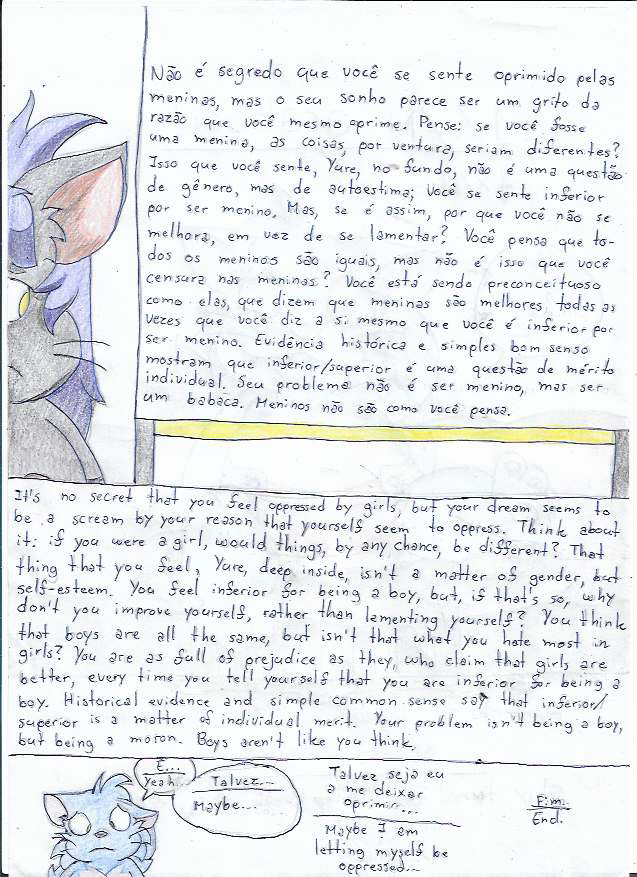 Não é segredo que você se sente oprimido pelas
meninas, mas o seu sonho parece ser um grito da
razão que você mesmo oprime. Pense: se você fosse
uma menina, as coisas, por ventura, seriam diferentes?
Isso que você sente, Yure, no fundo, não é uma questão
de gênero, mas de autoestima; você se sente inferior
por ser menino. Mas, se é assim, por que você não se
melhora, em vez de se lamentar? Você pensa que to-
dos os meninos são iguais, mas não é isso que você
censura nas meninas? Você está sendo preconceituoso
como elas, que dizem que meninas são melhores, todas as
vezes que você diz a si mesmo que você é inferior por
ser menino. Evidência histórica e simples bom senso
mostram que inferior/superior é uma questão de mérito
individual. Seu problema não é ser menino, mas ser
um babaca. Meninos não são como você pensa.
It's no secret that you feel oppressed by girls, but your dream seems to
be a scream by your reason that yourself seem to oppress. Think about
it: if you were a girl, would things, by any chance, be different? That
thing that you feel, Yure, deep inside, isn't a matter of gender, but
self-esteem. You feel inferior for being a boy, but, if that's so, why
don't you improve yourself, rather than lamenting yourself? You think
that boys are all the same, but isn't that what you hate most in
girls? You are as full of prejudice as they, who claim that girls are
better, every time you tell yourself that you are inferior for being a
boy. Historical evidence and simple common sense say that inferior/
superior is a matter of individual merit. Your problem isn't being a boy,
but being a moron. Boys aren't like you think.
É...
Yeah...
Talvez...
Maybe...
Talvez seja eu
a me deixar
oprimir...
Maybe I am
letting myself be
oppressed...
Fim.
End.